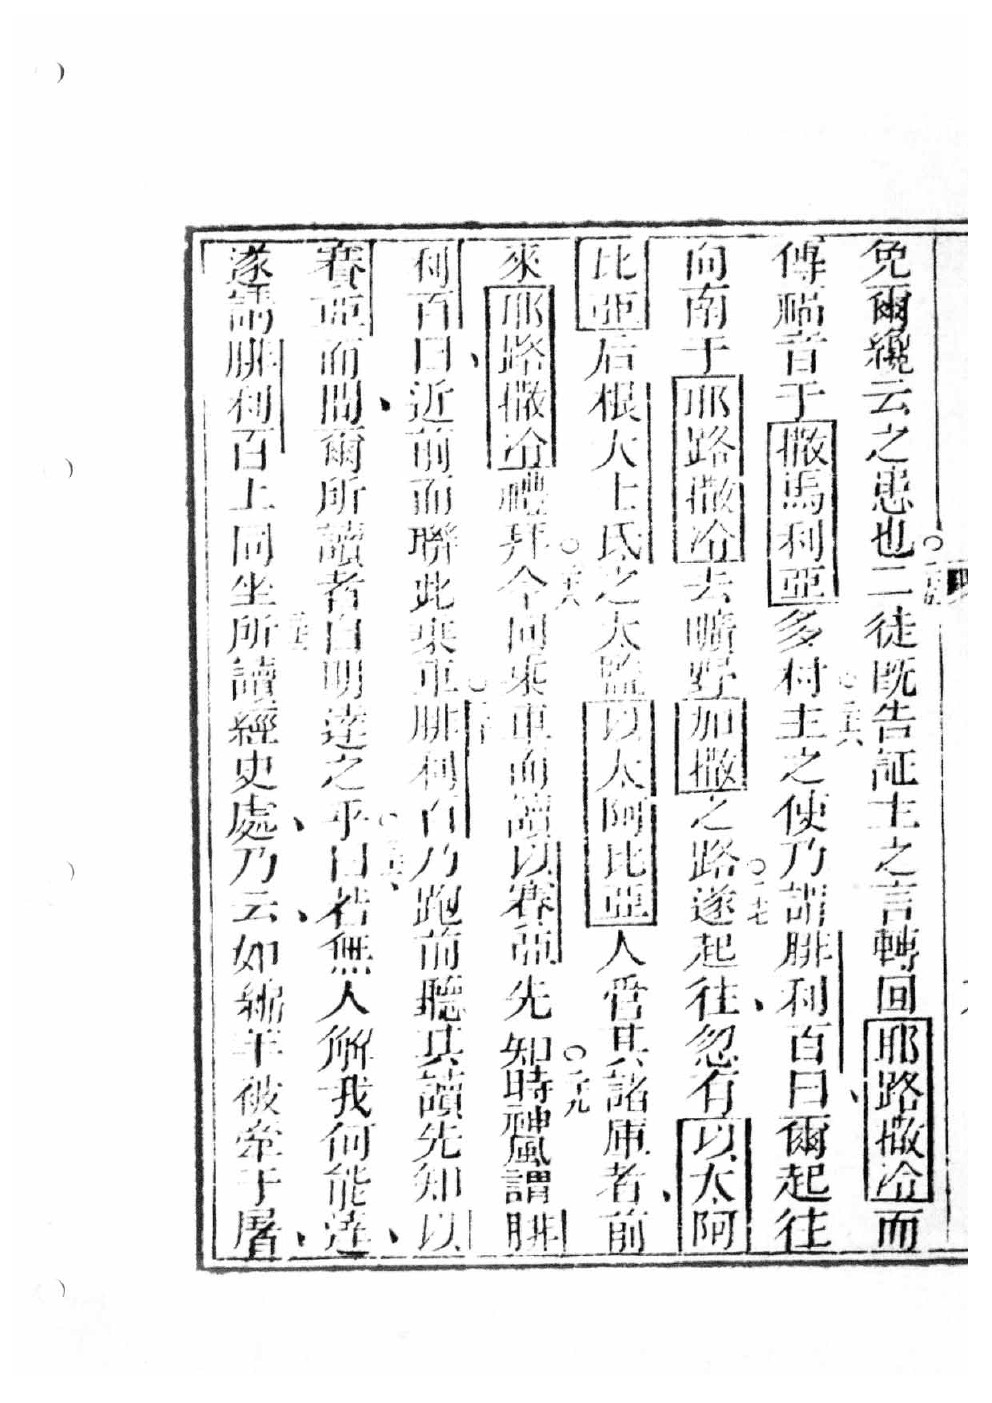 免爾纔云之患也○二徒既告証主之言轉回耶路撒冷而
傳福音于撒馬利亞多村○二十六主之使乃謂腓利百曰爾起往
向南于耶路撒冷去曠野加撒之路○二十七遂起往忽有以太阿
比亞后根大士氏之太監以太阿比亞人管其諸庫者前
來耶路撒冷禮拜○二十八今向乘車而讀以賽亞先知○二十九時神風謂腓
利百曰近前而聯此乘車○腓利百乃跑前聽其讀先知以
賽亞而問爾所讀者自明達之乎○曰若無人解我何能達
遂請腓利百上同坐所讀經史處乃云如綿羊被牽于屠